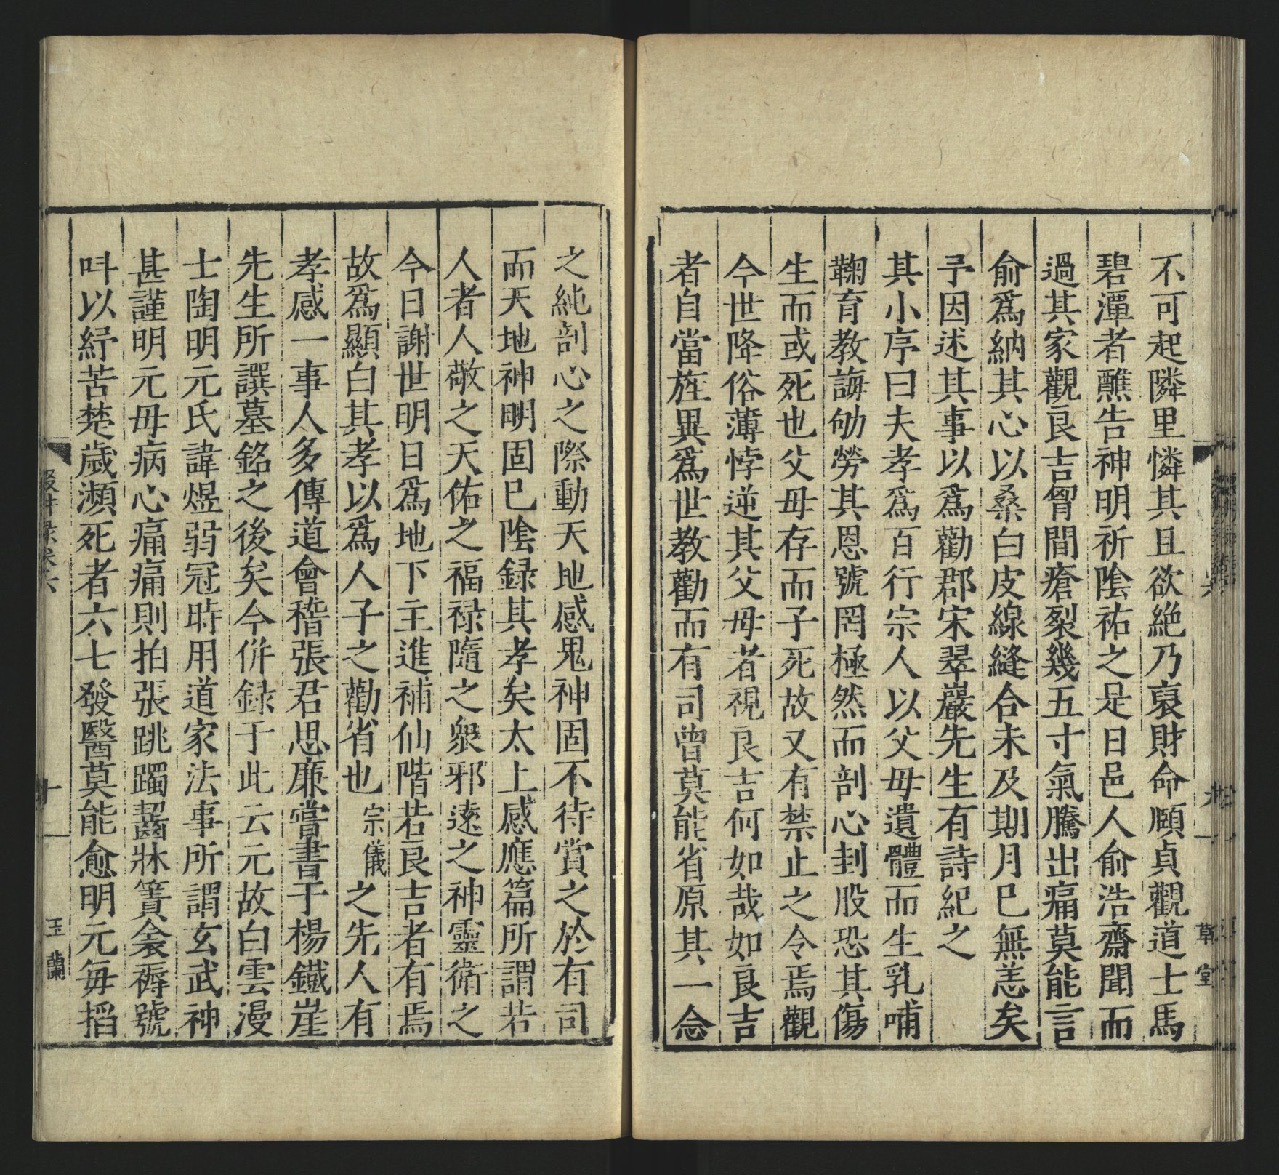 不可起隣里憐其且欲絶乃裒財命願貞觀道士馬
碧潭者醮告神明祈隂祐之足日邑人俞浩齋聞而
過其家觀良吉胷間瘡裂幾五寸氣騰出痛莫能言
俞爲納其心以桑白皮線縫合未及期月巳無恙矣
予因述其事以爲勸郡宋翠巖先生有詩紀之
其小序曰夫孝爲百行宗人以父母遺體而生乳哺
鞠育教誨劬勞其恩號罔極然而剖心刲股恐其傷
生而或死也父母存而子死故又有禁止之令焉觀
今世降俗薄悖逆其父母者視良吉何如哉如良吉
者自當旌異爲世教勸而有司曾莫能省原其一念
之純剖心之際動天地感鬼神固不待賞之於有司
而天地神明固巳隂録其孝矣太上感應篇所謂若
人者人敬之天佑之福禄隨之衆邪遠之神靈衛之
今日謝世明日爲地下主進補仙階若良吉者有焉
故爲顯白其孝以爲人子之勸省也宗儀之先人有
孝感一事人多傳道會稽張君思廉嘗書于楊鐵崖
先生所譔墓銘之後矣今併録于此云元故白雲漫
士陶明元氏諱煜弱冠時用道家法事所謂玄武神
甚謹明元母病心痛痛則拍張跳躅齧牀簀衾褥號
呌以紓苦楚歲瀕死者六七發醫莫能愈明元每搯
十
玉蘭
草堂